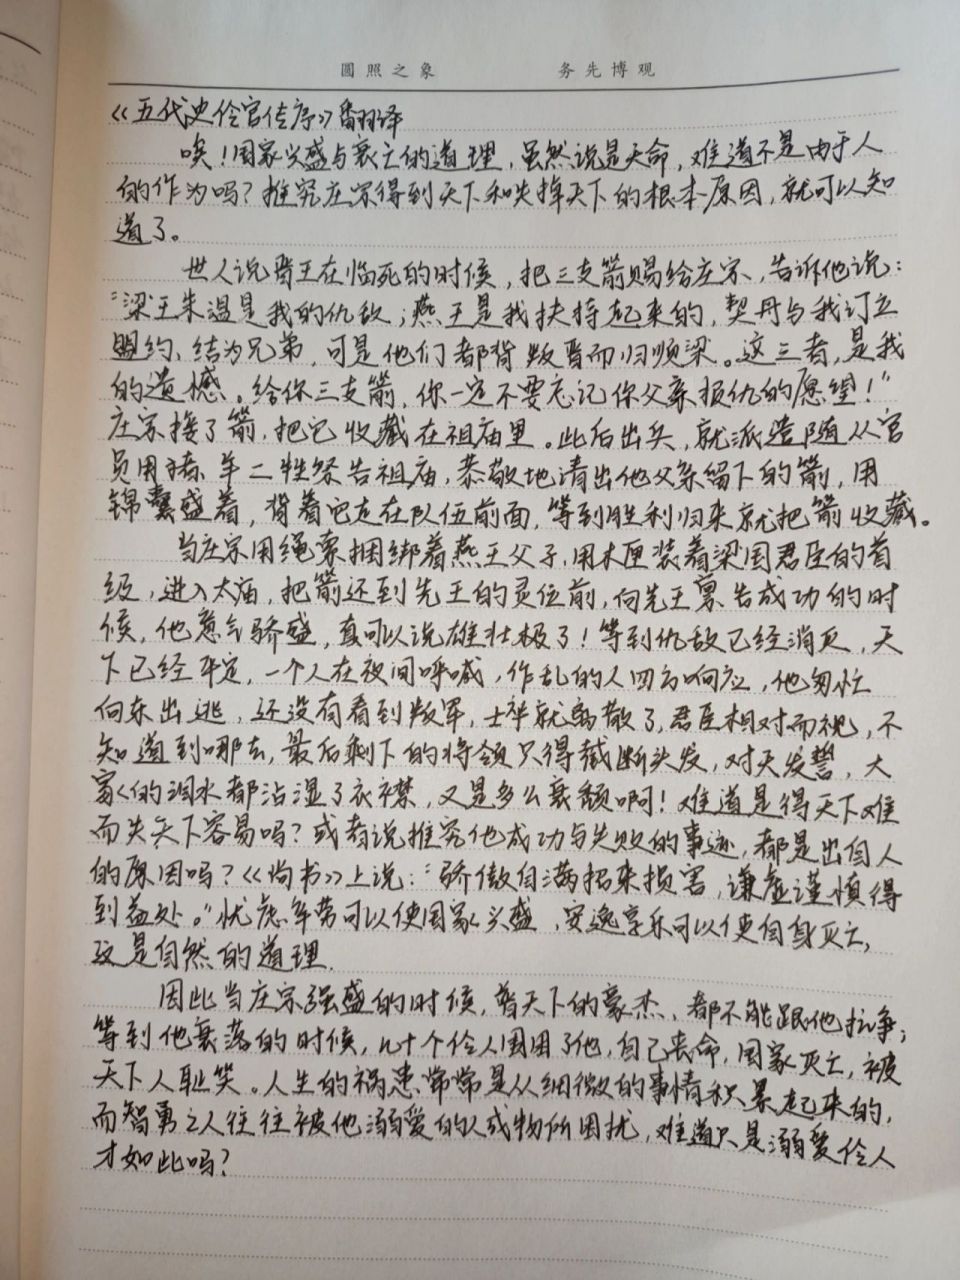 圓照之象 务先博观
《五代史伶官传序》翻译
唉！国家兴盛与衰亡的道理，虽然说是天命，难道不是由于人
的作为吗？推究庄宗得到天下和失掉天下的根本原因，就可以知
道了。
世人说晋王在临死的时候，把三支箭赐给庄宗，告诉他说：
“梁王朱温是我的仇敌；燕王是我扶持起来的，契丹与我订立
盟约、结为兄弟，可是他们都背叛晋而归顺梁。这三者，是我
的遗憾。给你三支箭，你一定不要忘记你父亲报仇的愿望！”
庄宗接了箭，把它收藏在祖庙里。此后出兵，就派遣随从官
员用猪、羊二牲祭告祖庙，恭敬地请出他父亲留下的箭，用
锦囊盛着，背着它走在队伍前面，等到胜利归来就把箭收藏。
当庄宗用绳索捆绑着燕王父子，用木匣装着梁国君臣的首
级，进入太庙，把箭还到先王的灵位前，向先王禀告成功的时
候，他意气骄盛，真可以说雄壮极了！等到仇敌已经消灭，天
下已经平定，一个人在夜间呼喊，作乱的人四方响应，他匆忙
向东出逃，还没有看到叛军，士卒就离散了，君臣相对而视，不
知道到哪去，最后剩下的将领只得截断头发，对天发誓，大
家的泪水都沾湿了衣襟，又是多么衰颓啊！难道是得天下难
而失天下容易吗？或者说推究他成功与失败的事迹，都是出自人
的原因吗？《尚书》上说：“骄傲自满招来损害，谦虚谨慎得
到益处。”忧虑辛劳可以使国家兴盛，安逸享乐可以使自身灭亡，
这是自然的道理.
因此当庄宗强盛的时候，普天下的豪杰、都不能跟他抗争；
等到他衰落的时候，几十个伶人围困了他，自己丧命，国家灭亡，被
天下人耻笑。人生的祸患常常是从细微的事情积累起来的，
而智勇之人往往被他溺爱的人或物所困扰，难道只是溺爱伶人
才如此吗？